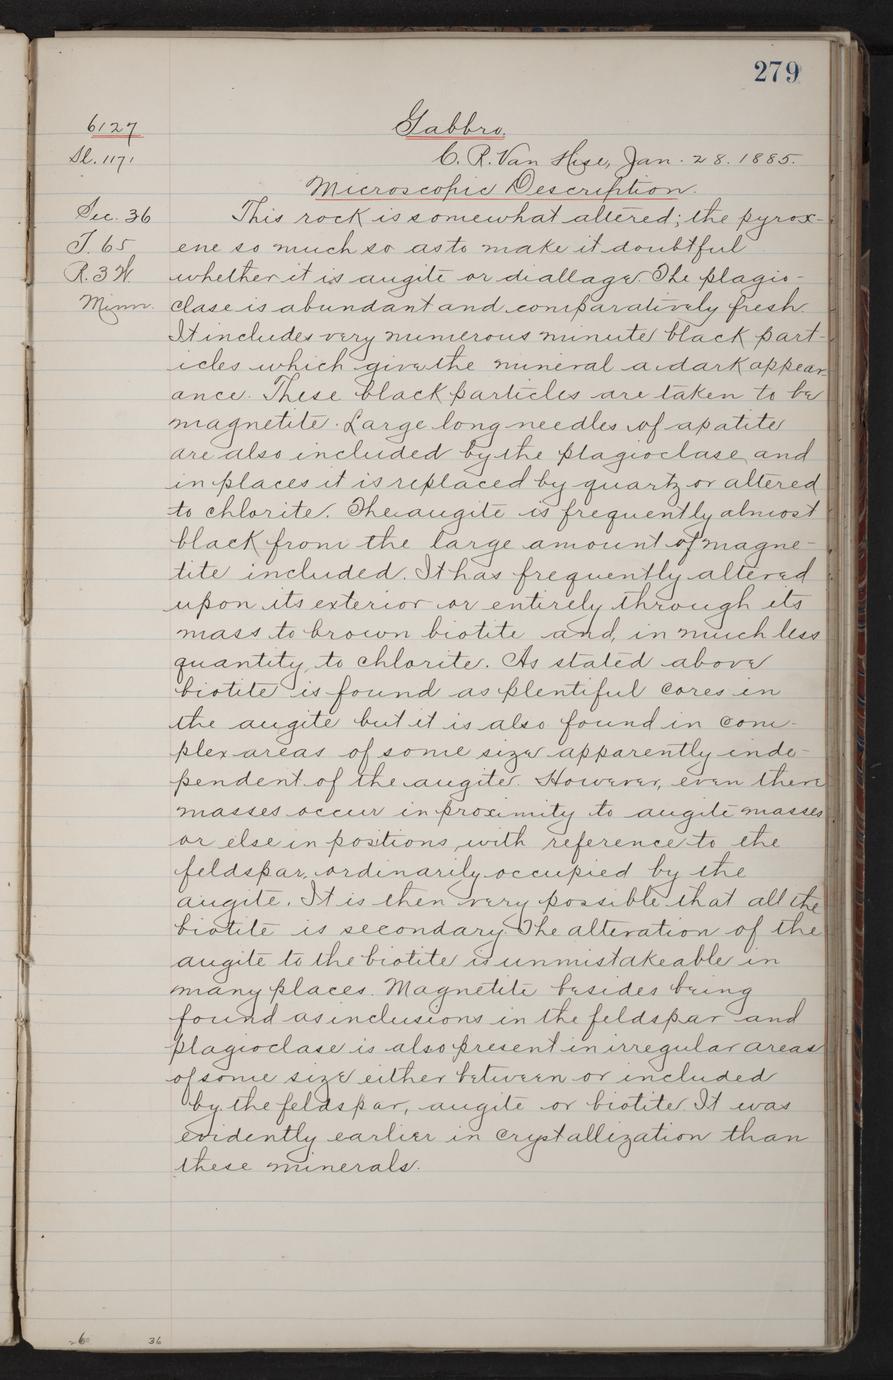 279
6127
Gabbro.
Sl. 1171
C. R. Van Hise, Jan. 28. 1885.
Microscopic Description.
Sec. 36
T. 65
R. 3 W.
Minn.
This rock is somewhat altered; the pyrox-
ene so much so as to make it doubtful
whether it is augite or diallage. The plagio-
clase is abundant and comparatively fresh.
It includes very numerous minute black part-
icles which give the mineral a dark appear-
ance. These black particles are taken to be
magnetite. Large long needles of apatite
are also included by the plagioclase, and
in places it is replaced by quartz or altered
to chlorite. The augite is frequently almost
black from the large amount of magne-
tite included. It has frequently altered
upon its exterior or entirely through its
mass to brown biotite and, in much less
quantity, to chlorite. As stated above
biotite is found as plentiful cores in
the augite but it is also found in com-
plex areas of some size apparently inde-
pendent of the augite. However, even there
masses occur in proximity to augite masses
or else in positions, with reference to the
feldspar, ordinarily occupied by the
augite. It is then very possible that all the
biotite is secondary. The alteration of the
augite to the biotite is unmistakeable in
many places. Magnetite besides being
found as inclusions in the feldspar and
plagioclase is also present in irregular areas
of some size either between or included
by the feldspar, augite or biotite. It was
evidently earlier in crystallization than
these minerals.
36